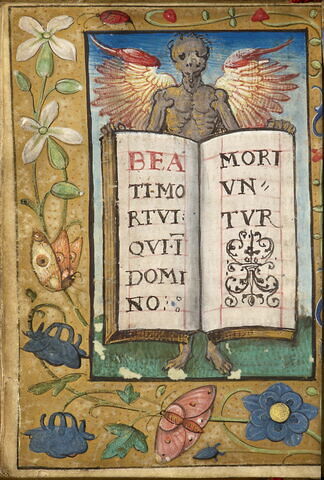 BEA
TI·MO
RTVI·
QVI·Ī
DOMI
NO:
MORI
VN〃
TVR